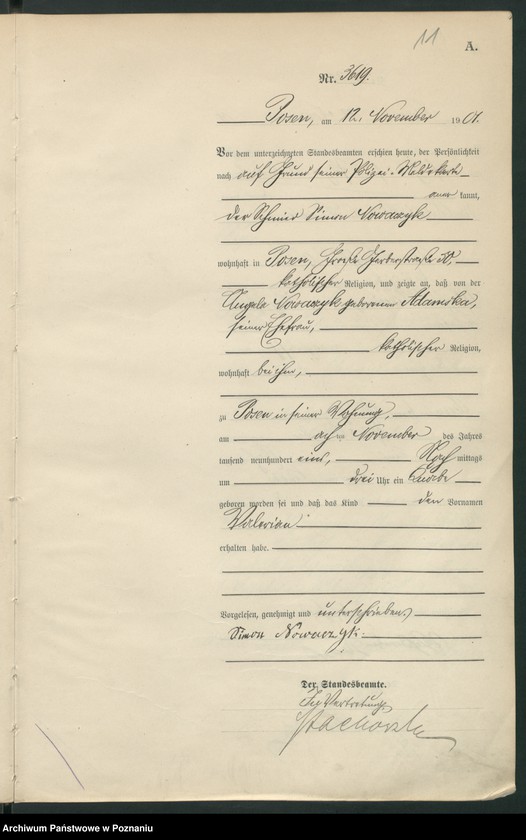 11
A.
Nr. 3619.
Posen, am 12. November 1901.
Vor dem unterzeichneten Standesbeamten erschien heute, der Persönlichkeit
nach auf Grund seiner Polizei-Meldekarte
aner kannt,
der Schmied Simon Nowaczyk
wohnhaft in Posen, Große
katholischer Religion, und zeigte an, daß von der
Angela Nowaczyk geborenen Adamska,
seiner Ehefrau,
katholischer Religion,
wohnhaft bei ihm,
zu Posen in seiner Wohnung,
am acht en November des Jahres
tausend neunhundert eins, Nach mittags
um drei Uhr ein Knabe
geboren worden sei und daß das Kind den Vornamen
Valerian
erhalten habe.
Vorgelesen, genehmigt und unterschrieben
Simon Nowaczyk.
Der Standesbeamte.
In Vertretung.
Archiwum Państwowe w Poznaniu